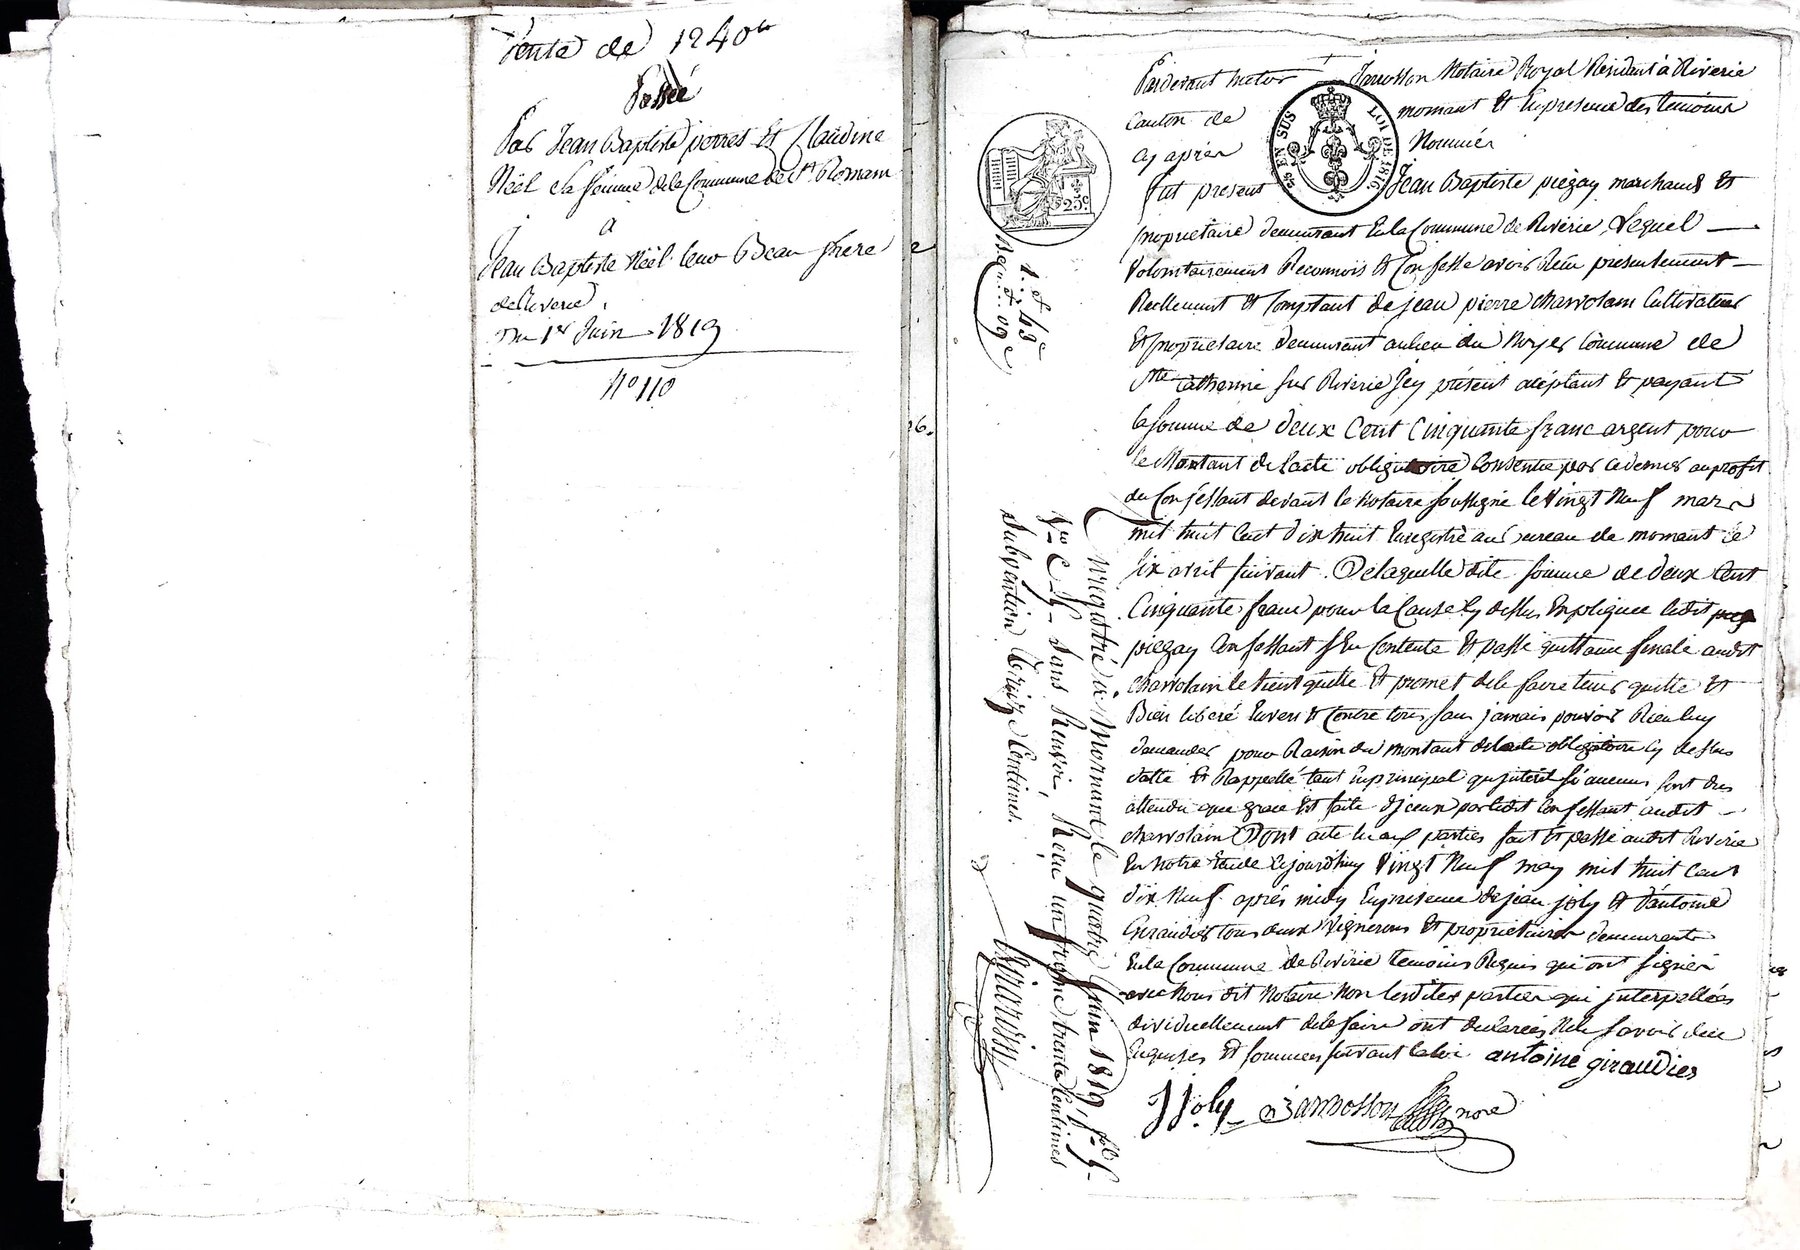 Vente de 1240 tt
Passée
Par Jean Baptiste pierres Et Claudine
Néel sa femme de la Commune de St. Romain
a
Jean Baptiste Néel leur Beau frere
de Riverie.
Du 1er Juin 1819
N° 110
Pardevant hector Jarrosson Notaire Royal Résidant à Riverie
Canton de mornant Et En presence des temoins
cy après Nommés
fut present Jean Baptiste piegay marchand Et
proprietaire demeurant En la Commune de Riverie, Lequel
Volontairement Reconnois Et Confesse avoir Reçu presentement
Reellement Et Comptant de jean pierre charvolain Cultivateur
Et proprietaire demeurant au lieu du Noyer Commune de
Ste Catherine sur Riverie Icy présent aceptant Et payant
la somme de deux Cent Cinquante franc argent pour
le Montant de l'acte obligatoire Consentie par ce dernier au profit
du Confessant devant le Notaire soussigné le Vingt Neuf mars
mil huit Cent dix huit Enregistré au Bureau de mornant le
six avril suivant. De laquelle dite somme de deux Cent
Cinquante franc pour la Cause Cy dessus Expliquee ledit
piegay Confessant s'en Contente Et passe quittance finale audit
charvolain le tient quitte Et promet de le faire tenir quitte Et
Bien liberé Envers Et Contre tous sans jamais pouvoir Rien luy
demander pour Raison du montant de lacte obligatoire cy dessus
datte Et Rappellé tant En principal qu'interet si aucuns sont dus
attendu que grace Est faite d'jceux par ledit Confessant audit
charvolain Dont acte lu aux parties fait Et passé audit Riverie
En notre Etude Cejourdhuy Vingt Neuf may mil huit Cent
dix Neuf après midy En presence de jean joly Et d'antoine
Giraudier tous deux Vignerons Et proprietaires demeurants
En la Commune de Riverie temoins Requis qui ont signés
avec Nous dit Notaire Non lesdites parties qui jnterpellées
dividuellement de le faire ont declarées Ne le savoir dûe
Enquises Et sommées suivant la loi. antoine giraudier
J Joly Jarrosson nore
EN SUS
LOI DE 1816
25 c
1. f 43 c
Enregistré à Mornant le quatre Juin 1819, fol. 5.
Vo C. 5. Sans Renvoi, Reçu un franc trente Centimes
Subvention Treize Centimes.